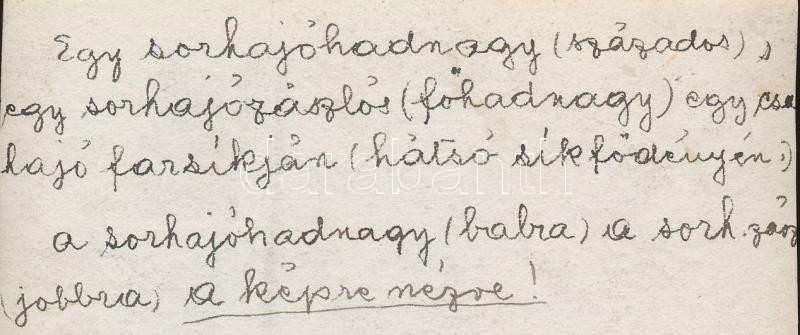 Egy sorhajóhadnagy (százados),
egy sorhajózászlós (főhadnagy) egy csa
hajó farsíkján (hátsó síkfödényén.)
a sorhajóhadnagy (balra) a sorh. zász
(jobbra) a képre nézve!
darabanth